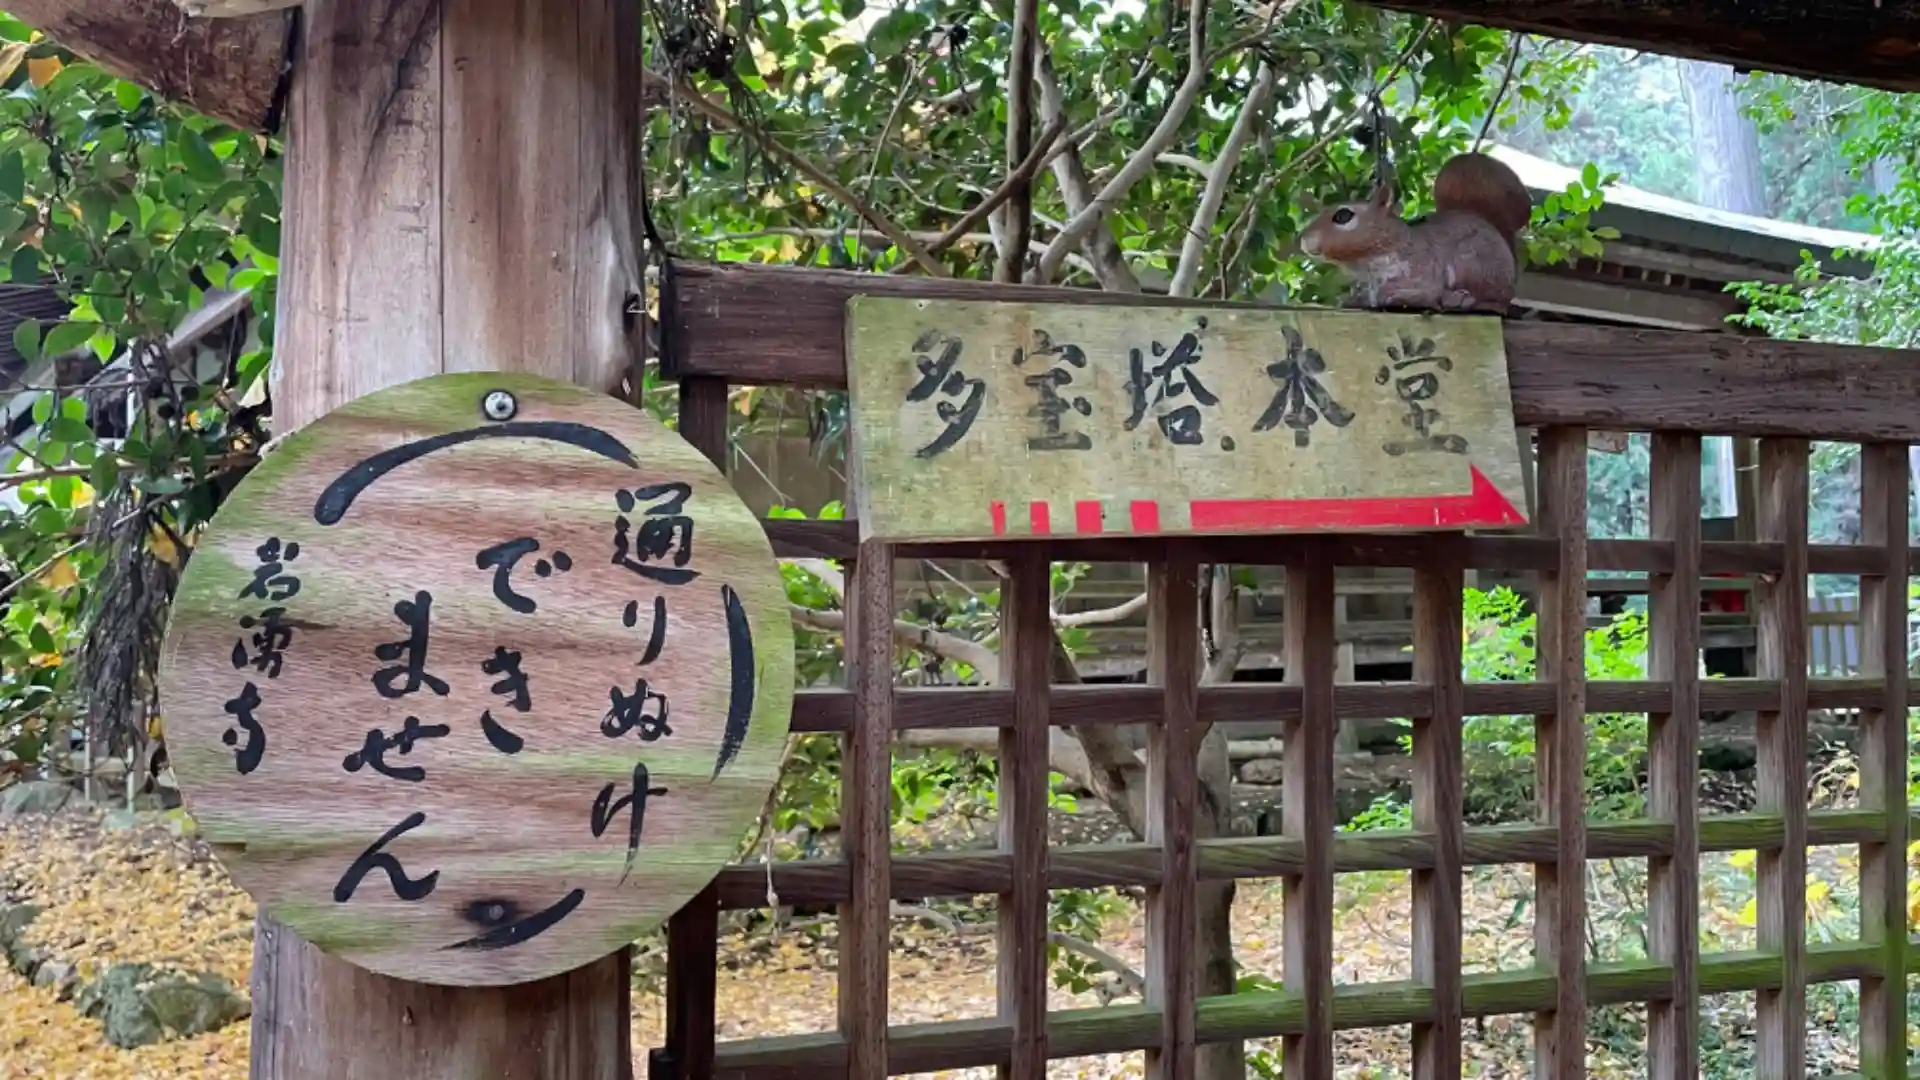 通りぬけ
できません
岩湧寺
多宝塔、本堂